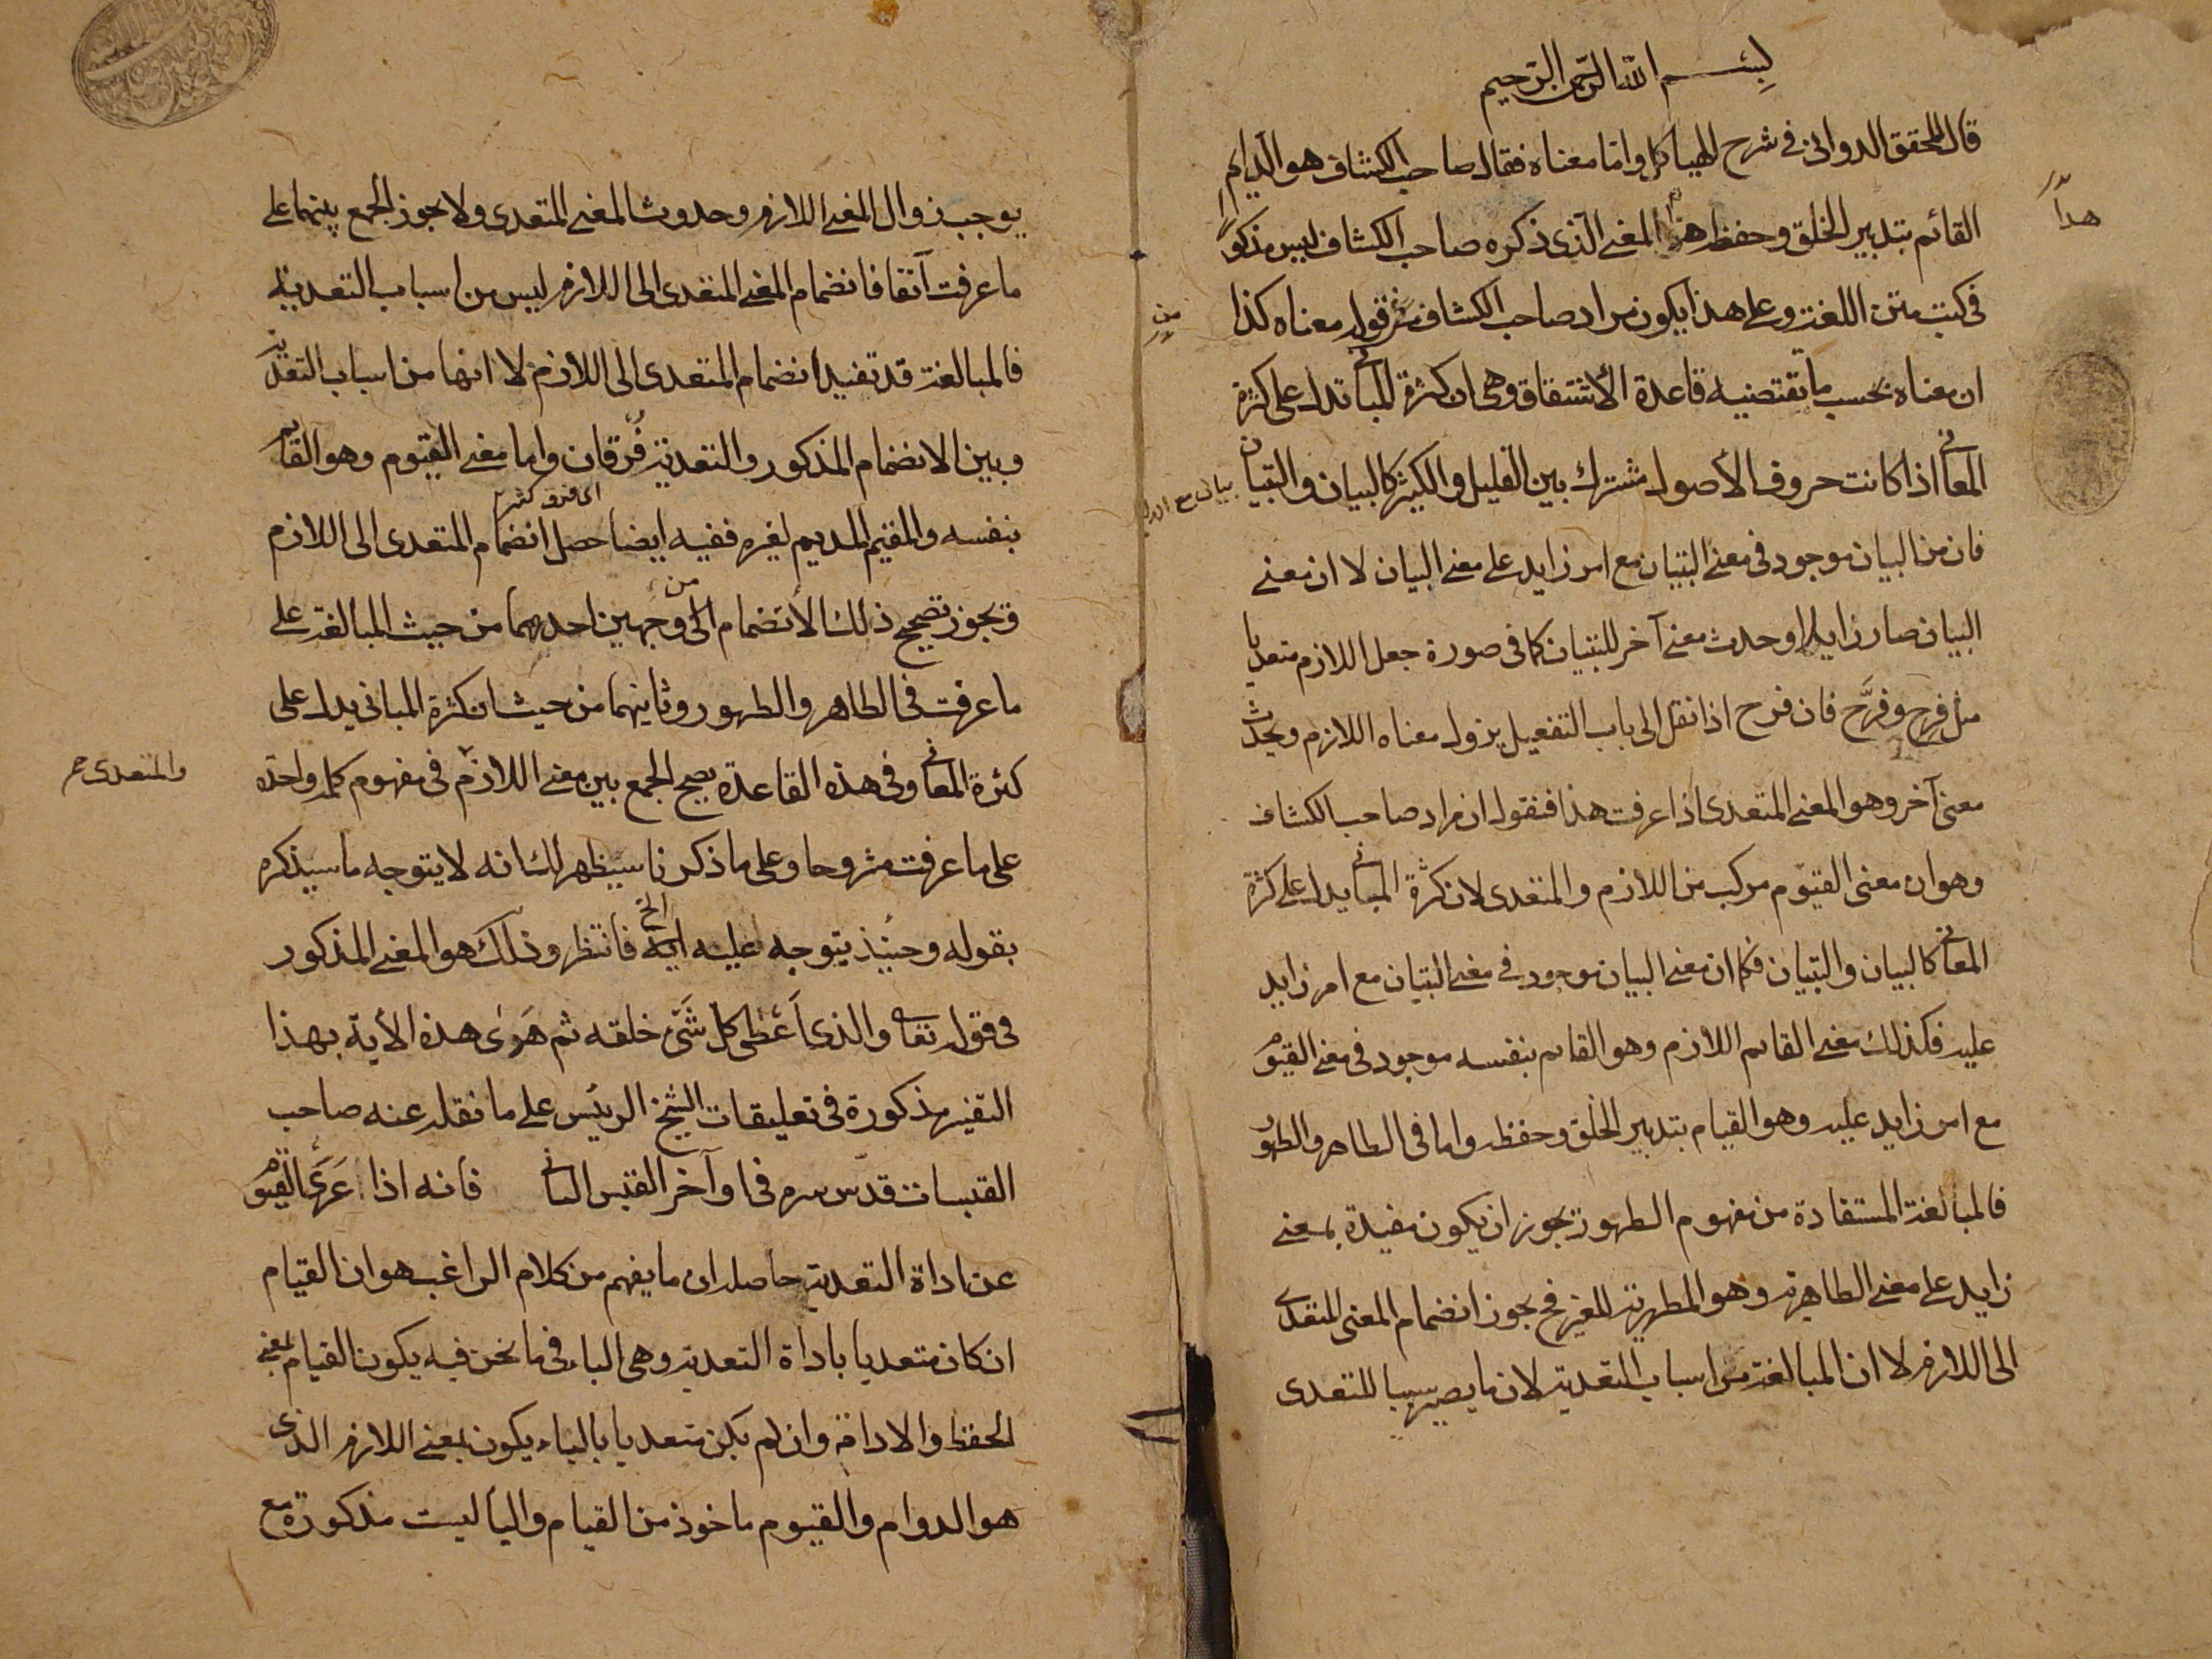 بسم الله الرحمن الرحيم
قال المحقق الدوانى فى شرح الهياكل واما معناه فقال صاحب الكشاف هو الدايم
القائم بتدبير الخلق وحفظه هذا المعنى الذى ذكره صاحب الكشاف ليس مذكورا
هذا
فى كتب متن اللغة وعلى هذا يكون مراد صاحب الكشاف من قوله معناه كذا
من
ان معناه بحسب ما تقتضيه قاعدة الاشتقاق وهى ان كثرة المبانى تدل على كثرة
المعانى اذا كانت حروف الأصول مشترك بين القليل والكثير كالبيان والتبيان
بيان مع
فان من البيان موجود فى معنى التبيان مع امر زايد على معنى البيان لا ان معنى
البيان صار زايلا وحدث معنى آخر للتبيان كما فى صورة جعل اللازم متعديا
مثل فرح وفرَّح فان فرح اذا نقل الى باب التفعيل يزول معناه اللازم ويحدث
معنى آخر وهو المعنى المتعدى اذا عرفت هذا فنقول ان مراد صاحب الكشاف
وهو ان معنى القيوم مركب من اللازم والمتعدى لان كثرة المبانى يدل على كثرة
المعانى كالبيان والتبيان فكما ان معنى البيان موجود فى معنى التبيان مع امر زايد
عليه فكذلك معنى القايم اللازم وهو القايم بنفسه موجود فى معنى القيوم
مع امر زايد عليه وهو القيام بتدبير الخلق وحفظه واما فى الطاهر والطهور
فالمبالغة المستفادة من مفهوم الطهور يجوز ان يكون مفيدة بمعنى
زايد على معنى الطاهرية وهو المطهرية للغير فح يجوز انضمام المعنى المتعدى
الى اللازم لا ان المبالغة من اسباب التعدية لان ما يصير سببا للمتعدى
يوجب زوال المعنى اللازم وحدوث المعنى المتعدى ولا يجوز الجمع بينهما على
ما عرفت آنفا فانضمام المعنى المتعدى الى اللازم ليس من اسباب التعدية
فالمبالغة قد تفيد انضمام المتعدى الى اللازم لا انها من اسباب التعدية
وبين الانضمام المذكور والتعدية فُرقان واما معنى القيوم وهو القايم
اى فرق كثير
بنفسه والمقيم المديم لغيره ففيه ايضا حصل انضمام المتعدى الى اللازم
ويجوز تصحيح ذلك الأنضمام الى من وجهين احدهما من حيث المبالغة على
ما عرفت فى الطاهر والطهور وثانيهما من حيث ان كثرة المبانى يدل على
كثرة المعانى وفى هذه القاعدة يصح الجمع بين معنى اللازم فى مفهوم كلمة واحدة
والمتعدى صح
على ما عرفت مشروحا وعلى ما ذكرنا سيظهر لك انه لا يتوجه ما سيذكره
بقوله وحينئذ يتوجه عليه الخ فانتظر وذلك هو المعنى المذكور
فى قوله تعالى والذى اَعْطى كل شَىْءٍ خلقه ثم هَدى هذه الأية بهذا
التفسير مذكورة فى تعليقات الشيخ الرييس على ما نقله عنه صاحب
القبسات قدس سره فى اوآخر القبس الثانى فانه اذا عَرىَ القيوم
عن اداة التعدية حاصله ان ما يفهم من كلام الراغب هو ان القيام
ان كان متعديا باداة التعدية وهى الباء فى ما نحن فيه يكون القيام بمعنى
الحفظ والادامة وان لم يكن متعديا بالباء يكون بمعنى اللازم الذى
هو الدوام والقيوم ماخوذ من القيام والبا ليست مذكورة مع